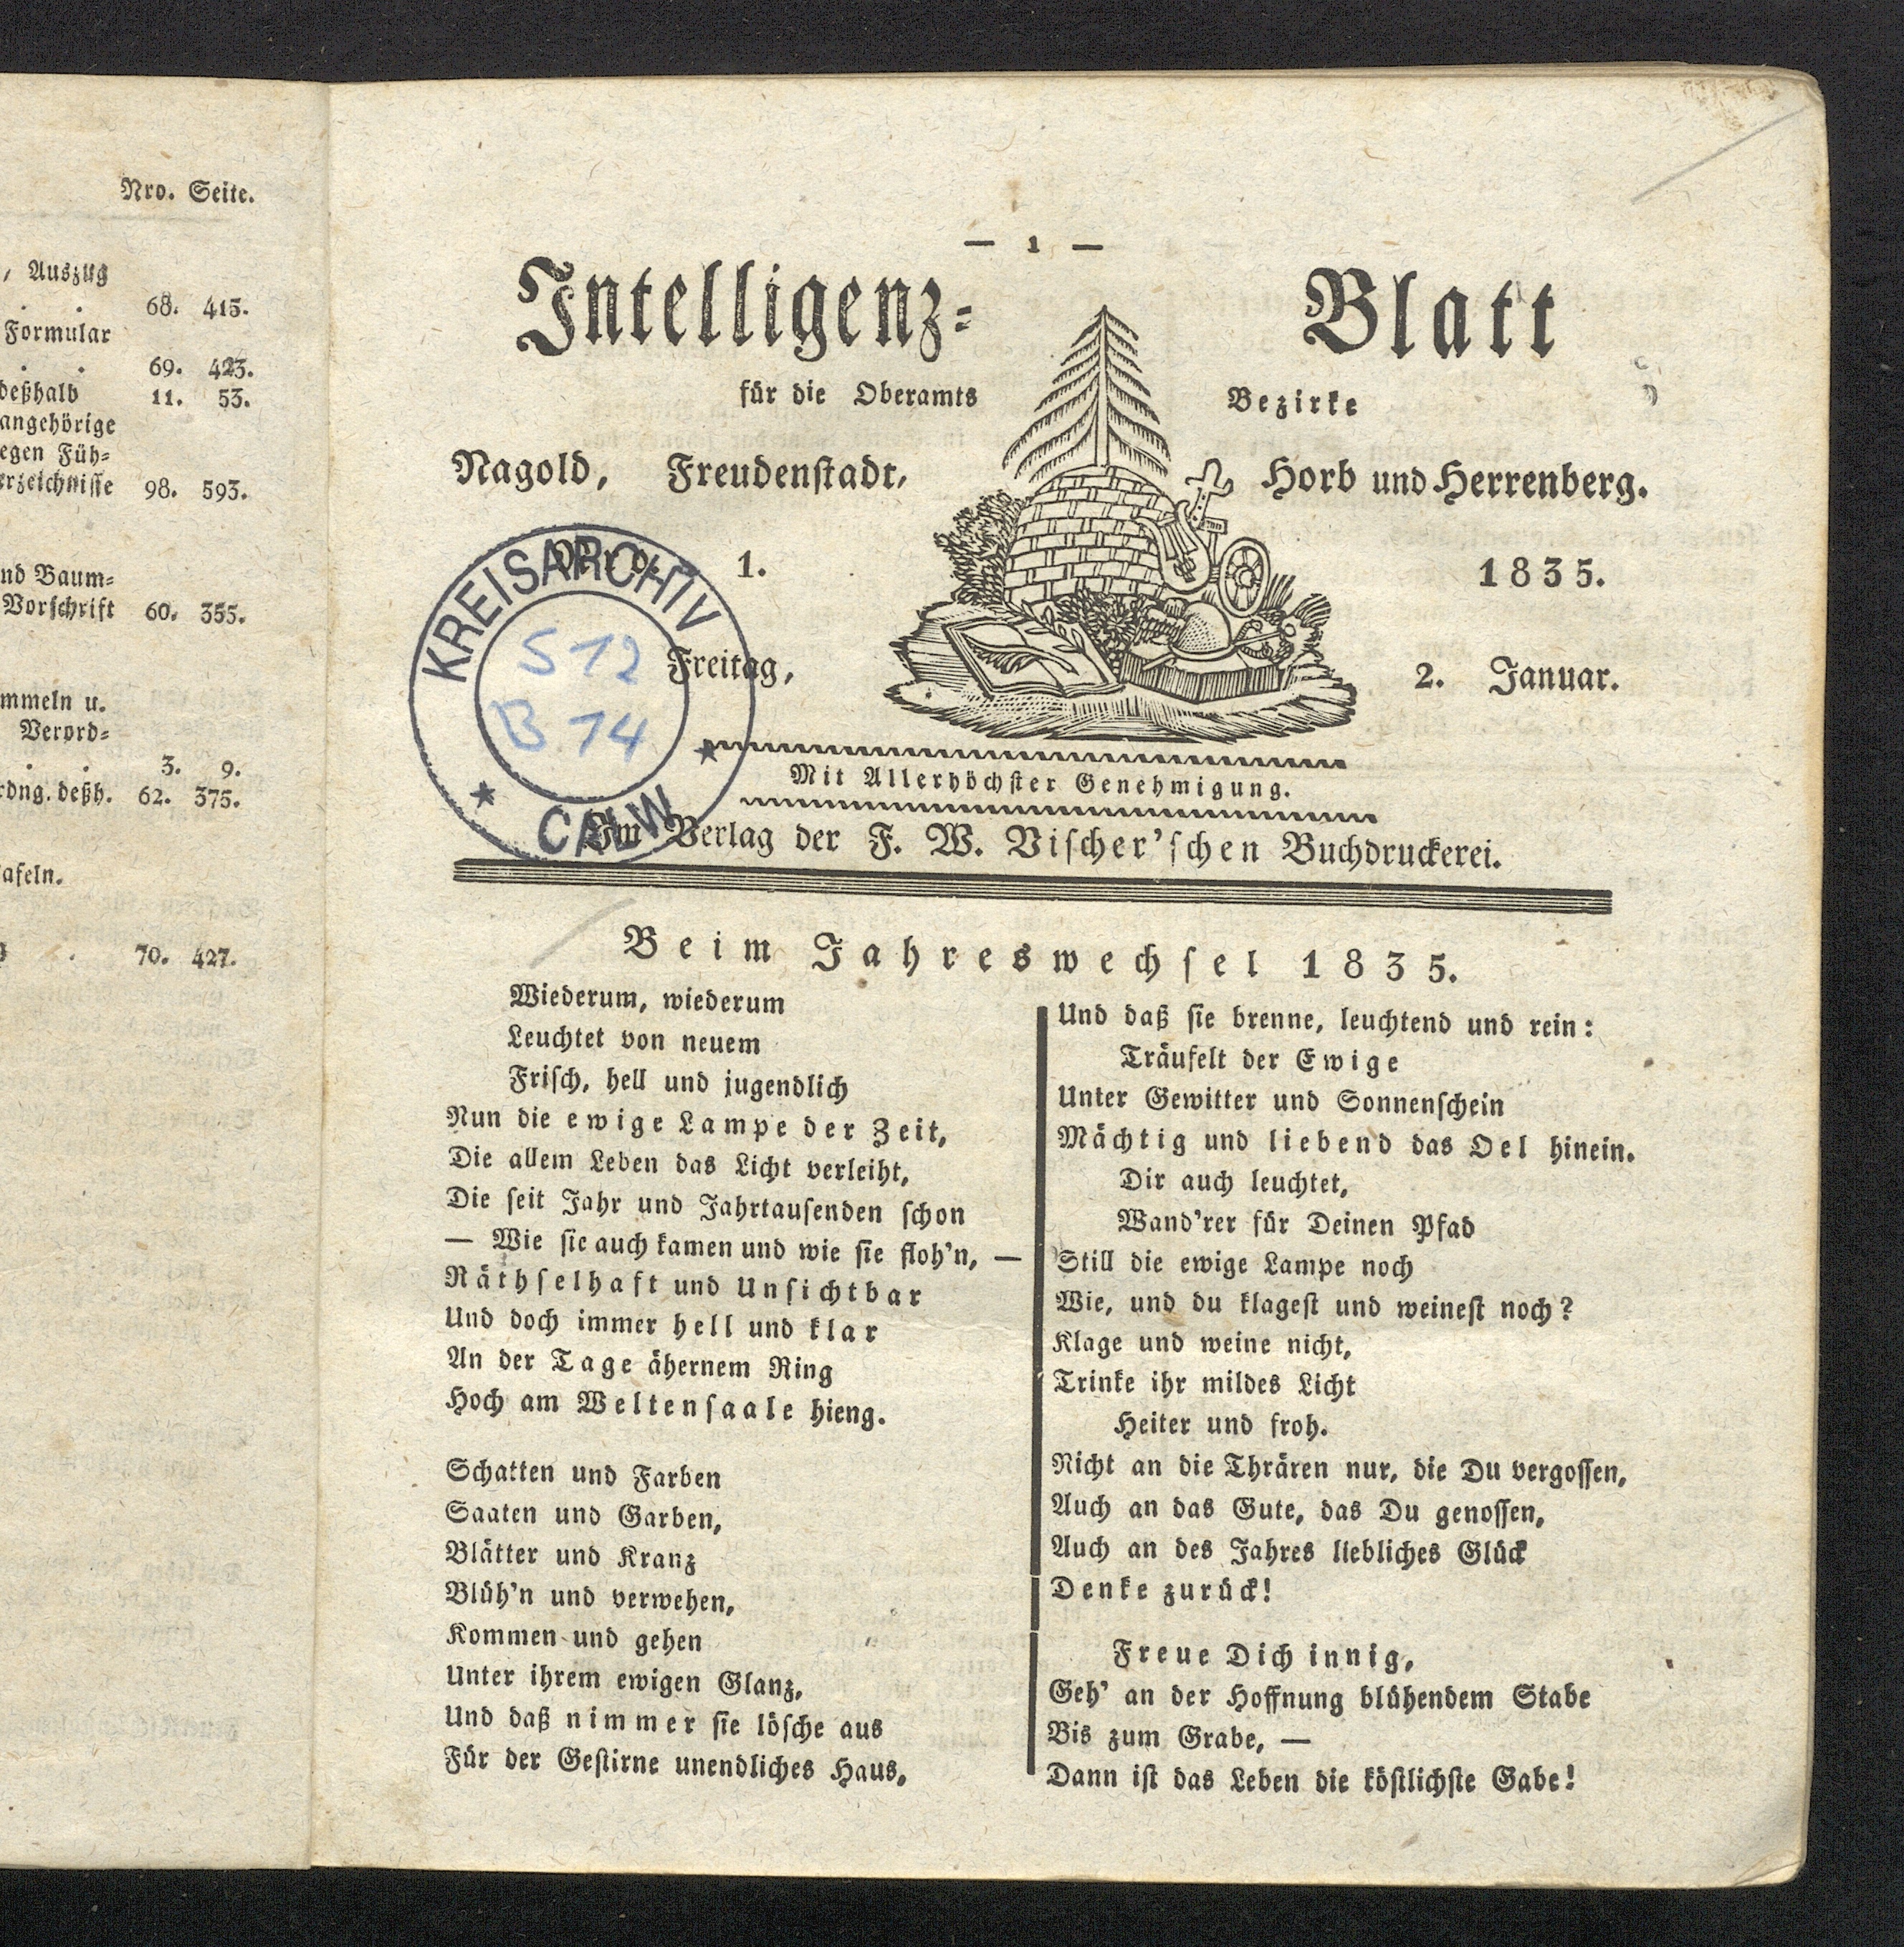 Nro. Seite.
, Auszug
. . 68. 415.
Formular
. . 69. 423.
deßhalb 11. 53.
angehörige
egen Füh-
erzeichnisse 98. 593.
nd Baum-
Vorschrift 60. 355.
mmeln u.
Verord-
. . 3. 9.
rdng. deßh. 62. 375.
afeln.
. 70. 427.
— 1 —
Intelligenz- Blatt
für die Oberamts Bezirke
Nagold, Freudenstadt, Horb und Herrenberg.
Nro. 1. 1835.
Freitag, 2. Januar.
KREISARCHIV
S 12
B 14
CALW
Mit Allerhöchster Genehmigung.
Im Verlag der F. W. Vischer'schen Buchdruckerei.
Beim Jahreswechsel 1835.
Wiederum, wiederum
Leuchtet von neuem
Frisch, hell und jugendlich
Nun die ewige Lampe der Zeit,
Die allem Leben das Licht verleiht,
Die seit Jahr und Jahrtausenden schon
— Wie sie auch kamen und wie sie floh'n, —
Räthselhaft und Unsichtbar
Und doch immer hell und klar
An der Tage ähernem Ring
Hoch am Weltensaale hieng.
Schatten und Farben
Saaten und Garben,
Blätter und Kranz
Blüh'n und verwehen,
Kommen und gehen
Unter ihrem ewigen Glanz,
Und daß nimmer sie lösche aus
Für der Gestirne unendliches Haus,
Und daß sie brenne, leuchtend und rein:
Träufelt der Ewige
Unter Gewitter und Sonnenschein
Mächtig und liebend das Oel hinein.
Dir auch leuchtet,
Wand'rer für Deinen Pfad
Still die ewige Lampe noch
Wie, und du klagest und weinest noch?
Klage und weine nicht,
Trinke ihr mildes Licht
Heiter und froh.
Nicht an die Thrären nur, die Du vergossen,
Auch an das Gute, das Du genossen,
Auch an des Jahres liebliches Glück
Denke zurück!
Freue Dich innig,
Geh' an der Hoffnung blühendem Stabe
Bis zum Grabe, —
Dann ist das Leben die köstlichste Gabe!